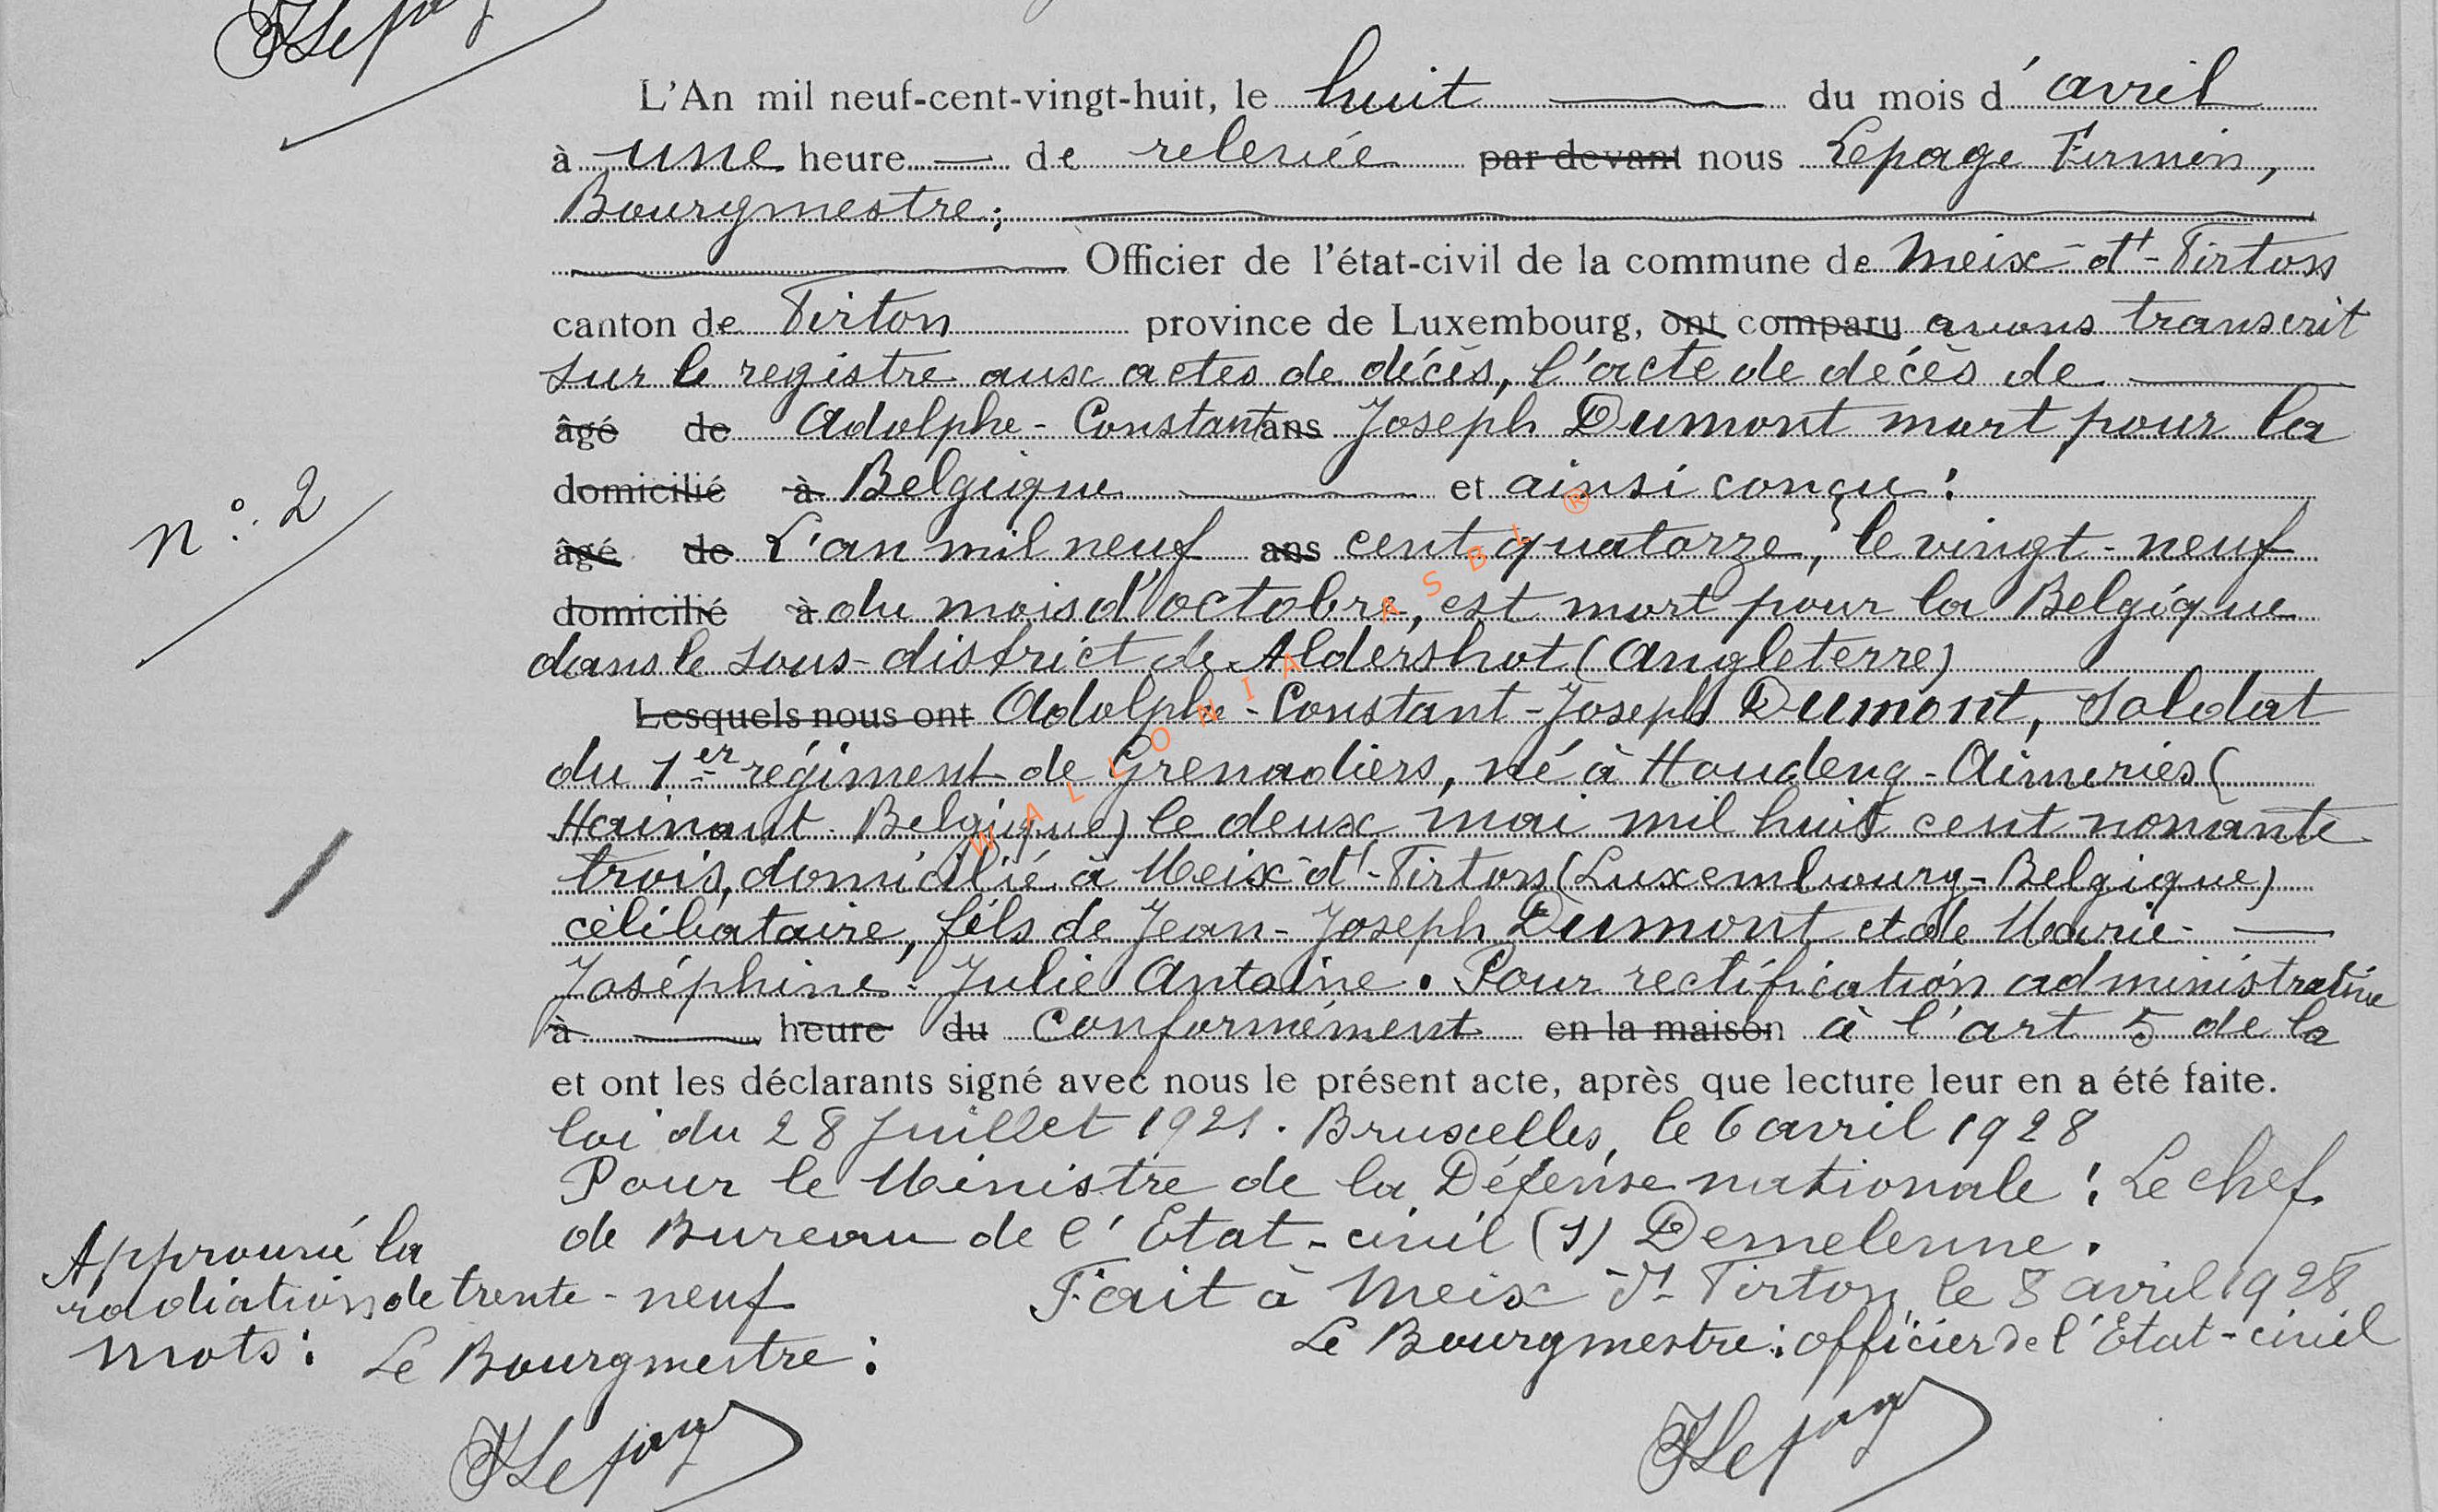 L'An mil neuf-cent-vingt-huit, le huit du mois d'avril
à une heure de relevée par devant nous Lepage Firmin,
Bourgmestre;
Officier de l'état-civil de la commune de Meix-dt-Virton
canton de Virton province de Luxembourg, ont comparu avons transcrit
sur le registre aux actes de décès, l'acte de décès de
âgé de Adolphe-Constant ans Joseph Dumont mort pour la
domicilié à Belgique et ainsi conçu:
n°. 2
âgé de L'an mil neuf ans cent quatorze, le vingt-neuf
domicilié à du mois d'octobre, est mort pour la Belgique
dans le sous-district de Aldershot (Angleterre)
Lesquels nous ont Adolphe-Constant-Joseph Dumont, Soldat
du 1er régiment de Grenadiers, né à Houdeng-Aimeries (
Hainaut-Belgique) le deux mai mil huit cent nonante
trois, domicilié à Meix-dt-Virton (Luxembourg-Belgique)
célibataire, fils de Jean-Joseph Dumont et de Marie-
Joséphine-Julie Antoine. Pour rectification administrative
à heure du Conformément en la maison à l'art 5 de la
et ont les déclarants signé avec nous le présent acte, après que lecture leur en a été faite.
loi du 28 Juillet 1921. Bruxelles, le 6 avril 1928
Pour le Ministre de la Défense nationale: Le chef
de Bureau de l'Etat-civil (s) Demelenne.
Approuvé la
radiation de trente-neuf
mots: Le Bourgmestre:
Fait à Meix-dt-Virton, le 8 avril 1928
Le Bourgmestre: officier de l'Etat-civil
FLepage
FLepage
FLepage
WALLONIA ASBL ®